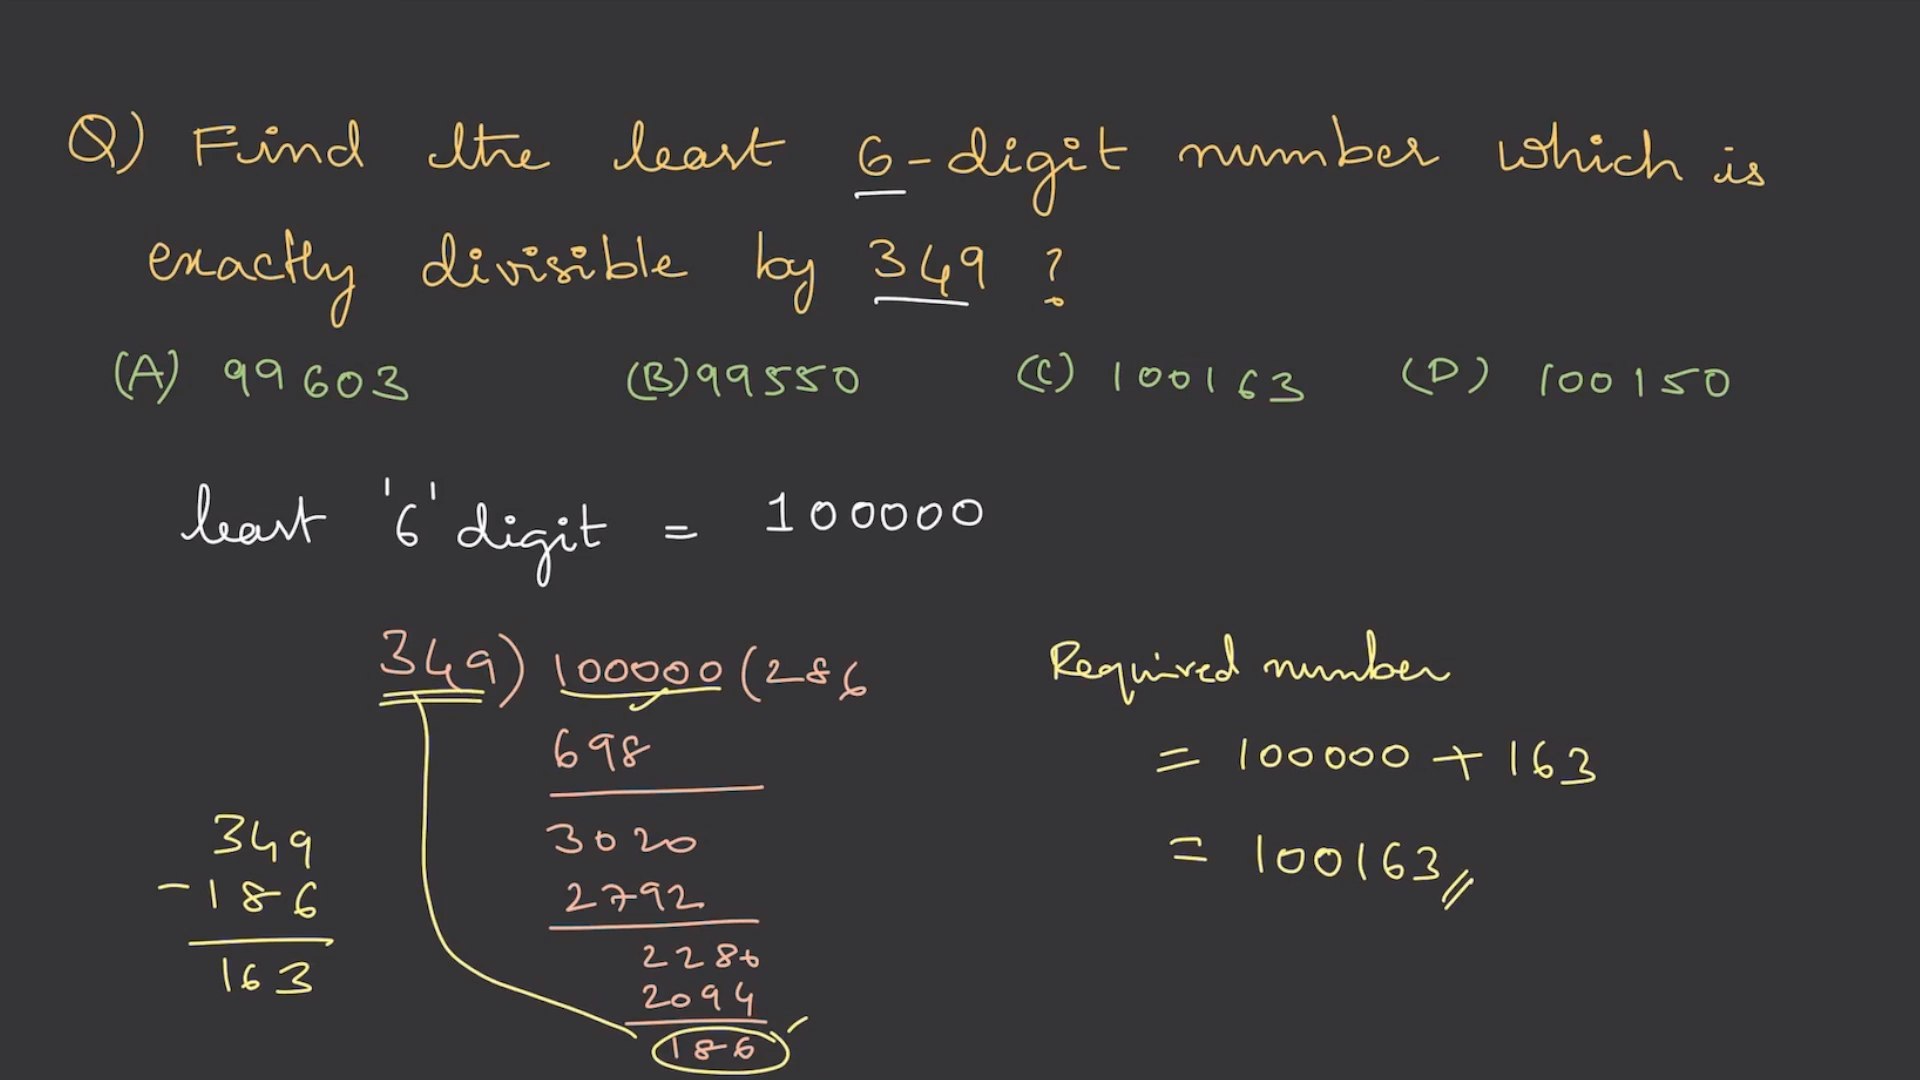 Q) Find the least 6-digit number which is
exactly divisible by 349 ?
(A) 99603 (B) 99550 (C) 100163 (D) 100150
least '6' digit = 100000
349) 100000 (286
698
3020
2792
2280
2094
186
349
- 186
163
Required number
= 100000 + 163
= 100163 //